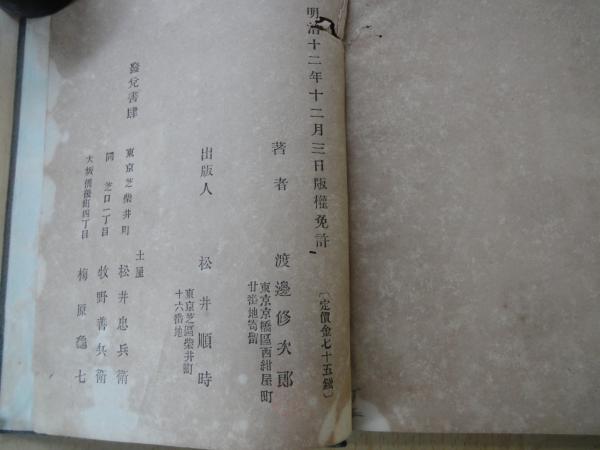 明治十二年十二月三日版權免許
〔定價金七十五錢〕
著者　渡邊修次郎
東京京橋區西紺屋町
廿番地寄留
出版人　松井順時
東京芝區柴井町
十六番地
發兌書肆
東京芝柴井町　土屋　松井忠兵衛
同　芝口一丁目　牧野善兵衛
大坂備後町四丁目　梅原亀七